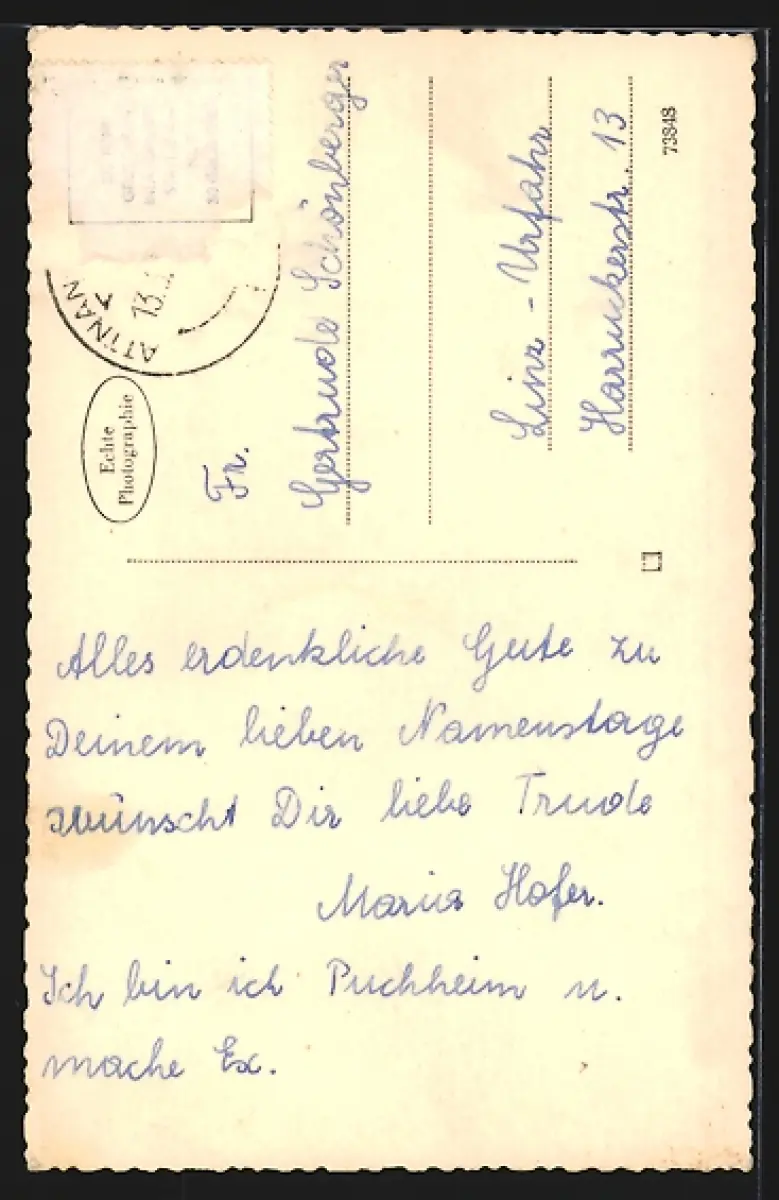 Alles erdenkliche Gute zu
Deinem lieben Namenstage
wünscht Dir liebe Trude
Maria Hofer.
Ich bin ich Puchheim u.
mache Ex.
Echte
Photographie
Fr.
Gertrude Schönberger
Linz - Urfahr
Harruckerstr. 13
73848
ATTNAN
13.